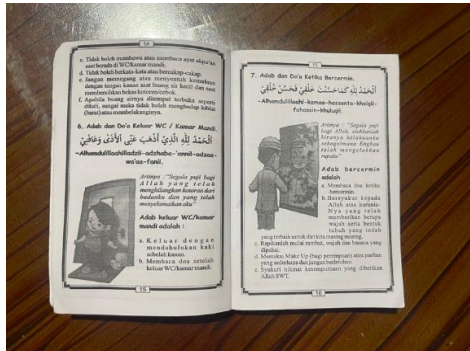 14
c. Tidak boleh membawa atau membaca ayat alqur'an
saat berada di WC/kamar mandi.
d. Tidak boleh berkata-kata atau bercakap-cakap.
e. Jangan memegang atau menyentuh kemaluan
dengan tangan kanan saat buang air kecil dan saat
membersihkan bekas kotoran/cebok.
f. Apabila buang airnya ditempat terbuka seperti
dikali, sungai maka tidak boleh menghadap kiblat
(barat) atau membelakanginya.
6. Adab dan Do'a Keluar WC / Kamar Mandi.
اَلْحَمْدُ لِلّٰهِ الَّذِيْ اَذْهَبَ عَنِّى اْلاَذٰى وَعَافَانِيْ
-Alhamdulillaahilladzii-adzhaba-'annil-adzaa-
wa'aa-fanii.
Artinya : "Segala puji bagi
Allah yang telah
menghilangkan kotoran dari
badanku dan yang telah
menyelamatkan aku"
Adab keluar WC/kamar
mandi adalah :
a. Keluar dengan
mendahulukan kaki
sebelah kanan.
b. Membaca doa setelah
keluar WC/kamar mandi.
15
7. Adab dan Do'a Ketika Bercermin.
اَلْحَمْدُ لِلّٰهِ كَمَا حَسَّنْتَ خَلْقِيْ فَحَسِّنْ خُلُقِيْ
-Alhamdulillaahi-kamaa-hassanta-kholqii-
fahassin-khuluqii.
Artinya : "Segala puji
bagi Allah,
kiranya
sebagaimana Engkau
telah mengelokkan
rupaku"
Adab bercermin
adalah
a. Membaca doa ketika
bercermin.
b. Bersyukur kepada
Allah atas karunia-
Nya yang telah
memberikan berupa
wajah serta bentuk
tubuh yang indah
yang terbaik untuk diri kita masing-masing.
c. Rapikanlah mulai rambut, wajah dan busana yang
dipakai.
d. Memakai Make Up (bagi perempuan) atau parfum
yang sederhana dan jangan berlebihan.
e. Syukuri nikmat kesempurnaan yang diberikan
Allah SWT.
16